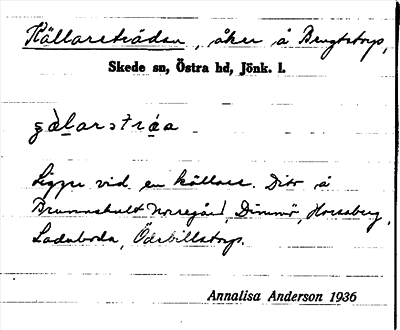 Källarsträdan, åker å Brugtstorp,
Skede sn, Östra hd, Jönk. l.
Ligger vid en källare. Dito å
Brunnshult Norregård, Dimmö, Horsaberg,
Laduborda, Öderbillstorp.
Annalisa Anderson 1936